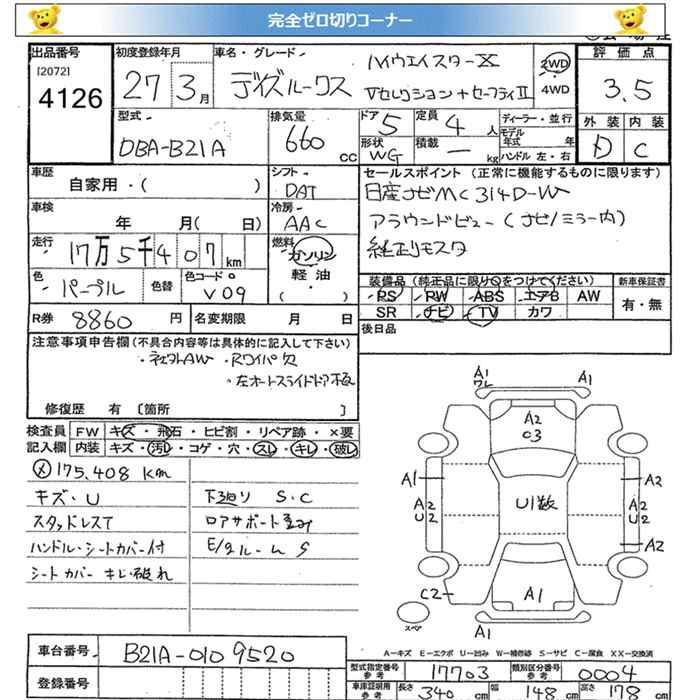 完全ゼロ切りコーナー
出品番号 初度登録年月 車名・グレード 評価点
[2072]
4126 27 3月 デイズルークス ハイウェイスターX 2WD 3.5
Vセレクション+セーフティII 4WD
型式 排気量 ドア 定員 ディーラー・並行 外装 内装
DBA-B21A 660cc 5 4人 モデル年式 年
形状 積載 ハンドル 左・右 D C
WG ー kg
車歴 シフト セールスポイント(正常に機能するものに限ります)
自家用・( ) DAT 日産ナビMC314D-W
車検 冷房 アラウンドビュー(ナビ/ミラー内)
年 月( 日) AAC 純正リモスタ
走行 17万5千407km 燃料 ガソリン
軽油・( )
色 パープル 色替 色コードNo V09
装備品(純正品に限り○をつけてください) 新車保証書
PS PW ABS エアB AW 有・無
SR ナビ TV カワ
R券 8860円 名変期限 月 日 後日品
注意事項申告欄(不具合内容等は具体的に記入して下さい)
・社外AW ・Rワイパ欠
・左オートスライドドア
修復歴 有 [箇所 ]
検査員 FW キズ・飛石・ヒビ割・リペア跡・×要
記入欄 内装 キズ・汚レ・コゲ・穴・スレ・キレ・破レ
175,408 km
キズ・U 下廻リ S.C
スタッドレスT ロアサポート歪み
ハンドル・シートカバー付 E/gルームS
シートカバー キレ・破れ
A1
ワレ
A1
A2
C3
A1 A2
A2
U2
U1散
A2
U2
A2
C2 A1
スペア
A1
A－キズ E－エクボ U－凹み W－補修跡 S－サビ C－腐食 XX－交換済
車台番号 B21A-0109520
型式指定番号 参考 17703 類別区分番号 参考 0004
登録番号
車庫証明用 参考 長さ 340cm 幅 148cm 高さ 178cm